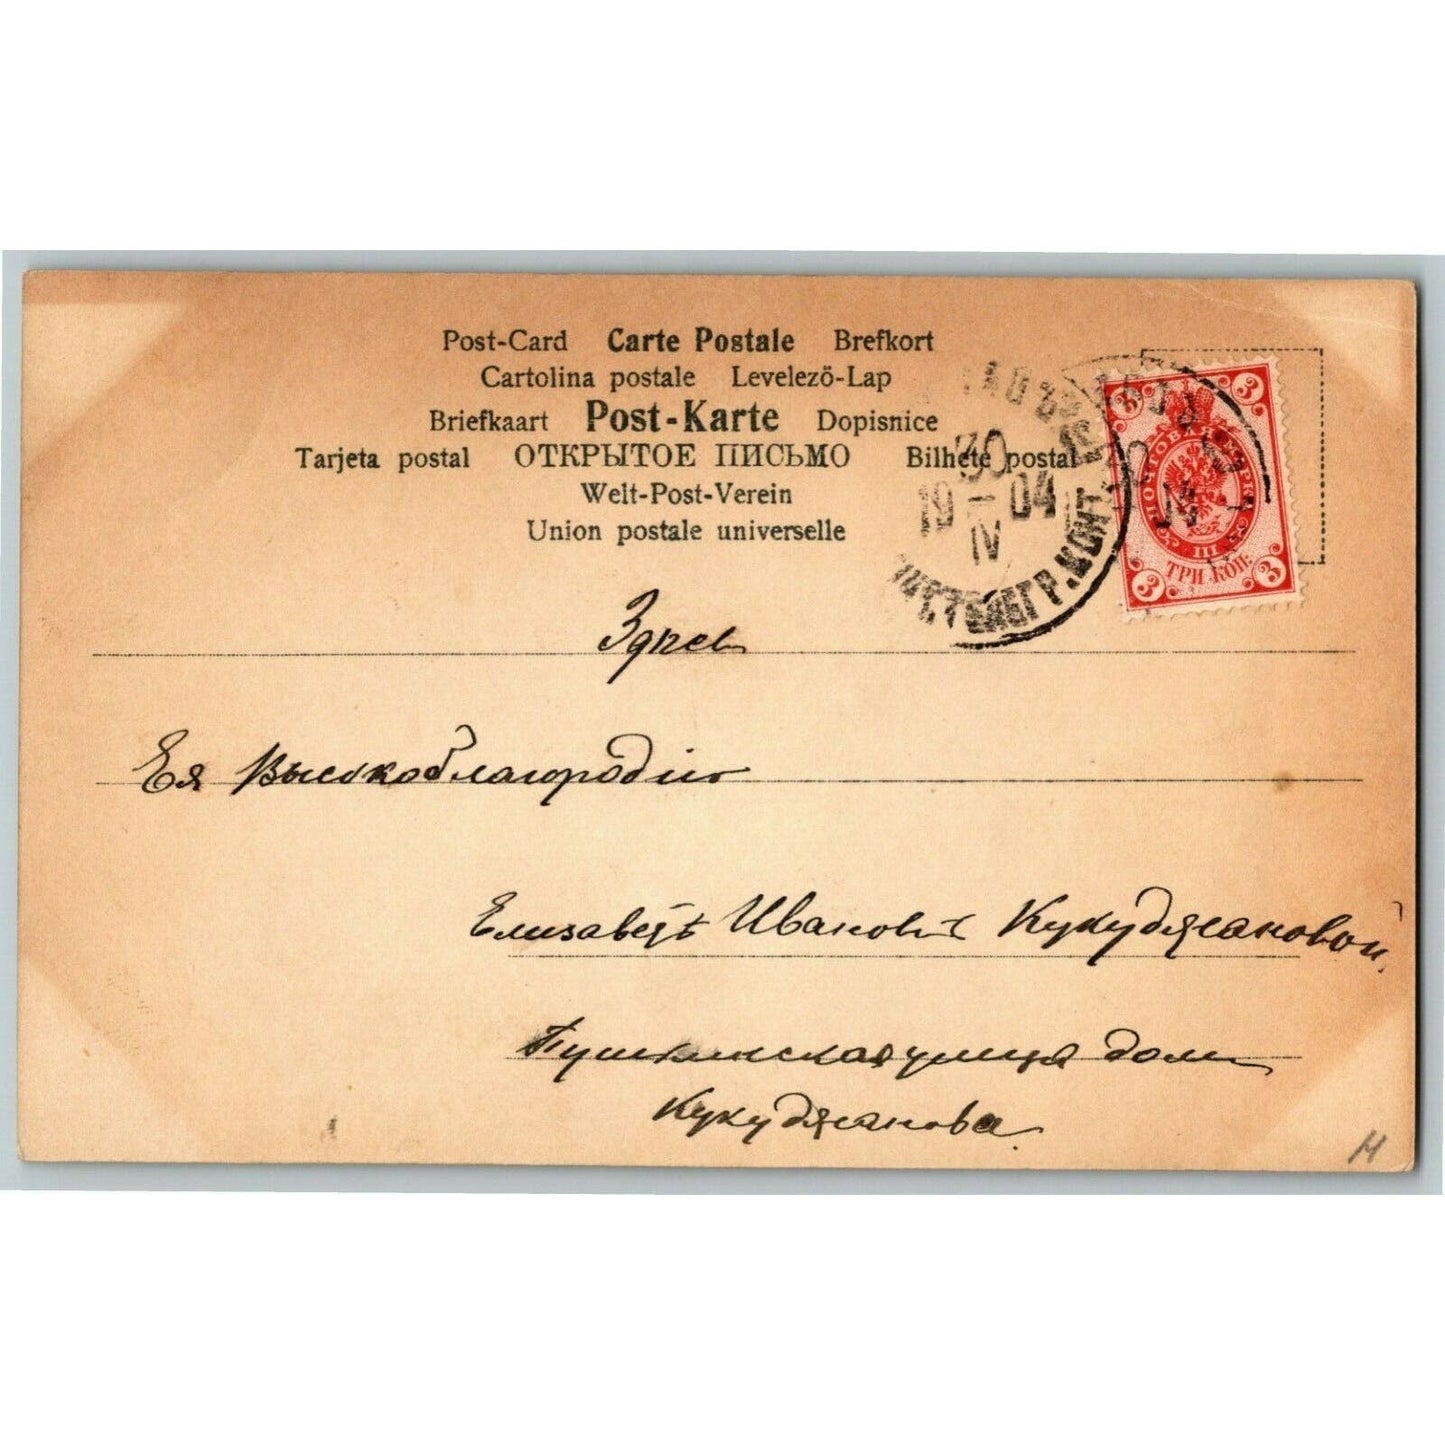 Post-Card Carte Postale Brefkort
Cartolina postale Levelezö-Lap
Briefkaart Post-Karte Dopisnice
Tarjeta postal ОТКРЫТОЕ ПИСЬМО Bilhete postal
Welt-Post-Verein
Union postale universelle
30
19 04
IV
ПОЧТОВАЯ МАРКА
3 3
III
ТРИ КОП.
3 3
Ея Высокоблагородію
Елизаветѣ Ивановнѣ
Пушкинская улица домъ